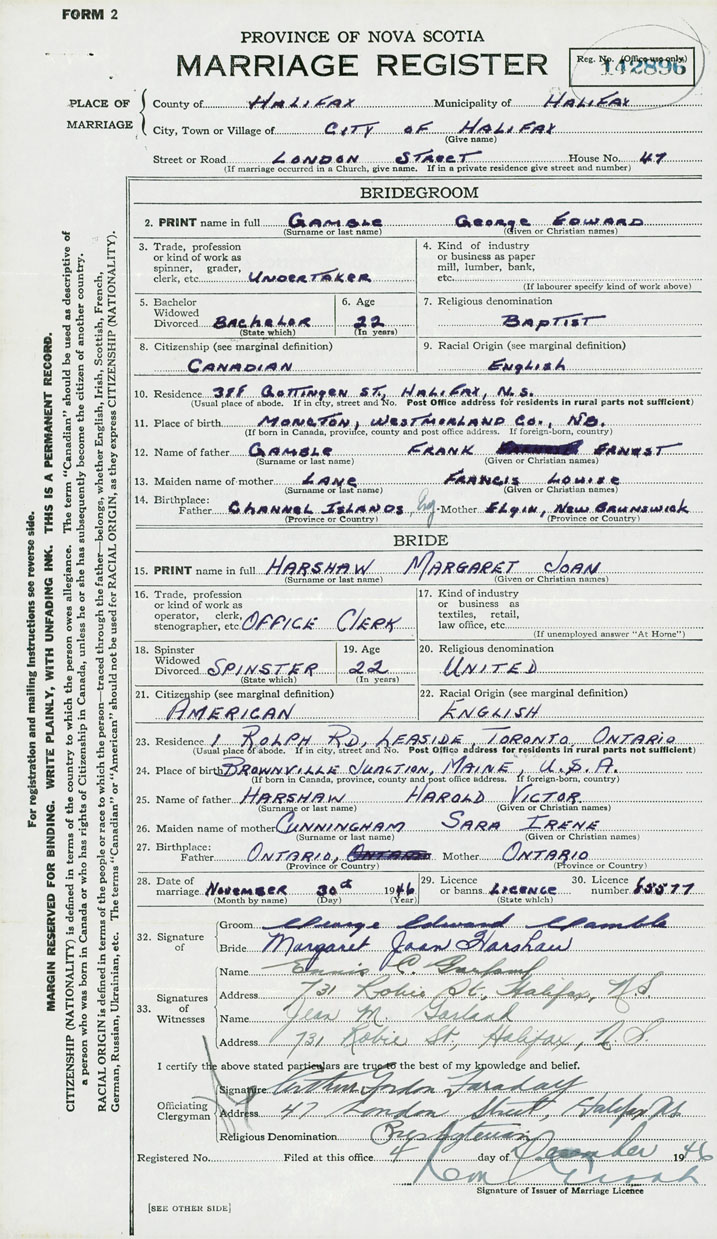 FORM 2
PROVINCE OF NOVA SCOTIA
MARRIAGE REGISTER
Reg. No. (Office use only)
142896
PLACE OF MARRIAGE
County of HALIFAX Municipality of HALIFAX
City, Town or Village of CITY OF HALIFAX
(Give name)
Street or Road LONDON STREET House No. 47
(If marriage occurred in a Church, give name. If in a private residence give street and number)
BRIDEGROOM
2. PRINT name in full GAMBLE GEORGE EDWARD
(Surname or last name) (Given or Christian names)
3. Trade, profession or kind of work as spinner, grader, clerk, etc. UNDERTAKER
4. Kind of industry or business as paper mill, lumber, bank, etc.
(If labourer specify kind of work above)
5. Bachelor Widowed Divorced BACHELOR
(State which)
6. Age 22
(In years)
7. Religious denomination
BAPTIST
8. Citizenship (see marginal definition)
CANADIAN
9. Racial Origin (see marginal definition)
ENGLISH
10. Residence 388 GOTTINGEN ST., HALIFAX, N.S.
(Usual place of abode. If in city, street and No. Post Office address for residents in rural parts not sufficient)
11. Place of birth MONCTON, WESTMORLAND CO., N.B.
(If born in Canada, province, county and post office address. If foreign-born, country)
12. Name of father GAMBLE FRANK ERNEST
(Surname or last name) (Given or Christian names)
13. Maiden name of mother LANE FRANCIS LOUISE
(Surname or last name) (Given or Christian names)
14. Birthplace: Father CHANNEL ISLANDS, Eng. Mother ELGIN, NEW BRUNSWICK
(Province or Country) (Province or Country)
BRIDE
15. PRINT name in full HARSHAW MARGARET JOAN
(Surname or last name) (Given or Christian names)
16. Trade, profession or kind of work as operator, clerk, stenographer, etc. OFFICE CLERK
17. Kind of industry or business as textiles, retail, law office, etc.
(If unemployed answer "At Home")
18. Spinster Widowed Divorced SPINSTER
(State which)
19. Age 22
(In years)
20. Religious denomination
UNITED
21. Citizenship (see marginal definition)
AMERICAN
22. Racial Origin (see marginal definition)
ENGLISH
23. Residence 1 ROLPH RD, LEASIDE, TORONTO, ONTARIO
(Usual place of abode. If in city, street and No. Post Office address for residents in rural parts not sufficient)
24. Place of birth BROWNVILLE JUNCTION, MAINE, U.S.A.
(If born in Canada, province, county and post office address. If foreign-born, country)
25. Name of father HARSHAW HAROLD VICTOR
(Surname or last name) (Given or Christian names)
26. Maiden name of mother CUNNINGHAM SARA IRENE
(Surname or last name) (Given or Christian names)
27. Birthplace: Father ONTARIO, ONTARIO Mother ONTARIO
(Province or Country) (Province or Country)
28. Date of marriage NOVEMBER 30th 1946
(Month by name) (Day) (Year)
29. Licence or banns LICENCE
30. Licence number 65577
32. Signature of
Groom George Edward Gamble
Bride Margaret Joan Harshaw
33. Signatures of Witnesses
Name Ennis C. Garland
Address 731 Robie St., Halifax, N.S.
Name Jean M. Garland
Address 731 Robie St., Halifax, N.S.
I certify the above stated particulars are true to the best of my knowledge and belief.
Officiating Clergyman
Signature Arthur Gordon Faraday
Address 47 London Street, Halifax NS
Religious Denomination Presbyterian
Registered No. Filed at this office 4 day of December 1946
Signature of Issuer of Marriage Licence
[SEE OTHER SIDE]
For registration and mailing instructions see reverse side.
MARGIN RESERVED FOR BINDING. WRITE PLAINLY, WITH UNFADING INK. THIS IS A PERMANENT RECORD.
CITIZENSHIP (NATIONALITY) is defined in terms of the country to which the person owes allegiance. The term "Canadian" should be used as descriptive of
a person who was born in Canada or who has rights of Citizenship in Canada, unless he or she has subsequently become the citizen of another country.
RACIAL ORIGIN is defined in terms of the people or race to which the person—traced through the father—belongs, whether English, Irish, Scottish, French,
German, Russian, Ukrainian, etc. The terms "Canadian" or "American" should not be used for RACIAL ORIGIN, as they express CITIZENSHIP (NATIONALITY).